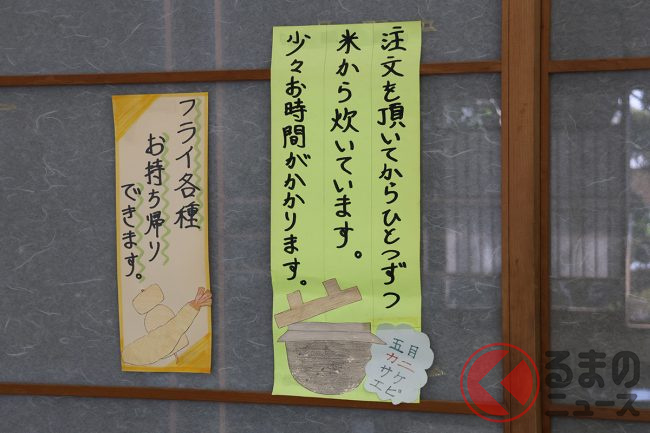 注文を頂いてからひとつずつ
米から炊いています。
少々お時間がかかります。
五目
カニ
サケ
エビ
フライ各種
お持ち帰り
できます。
くるまの
ニュース